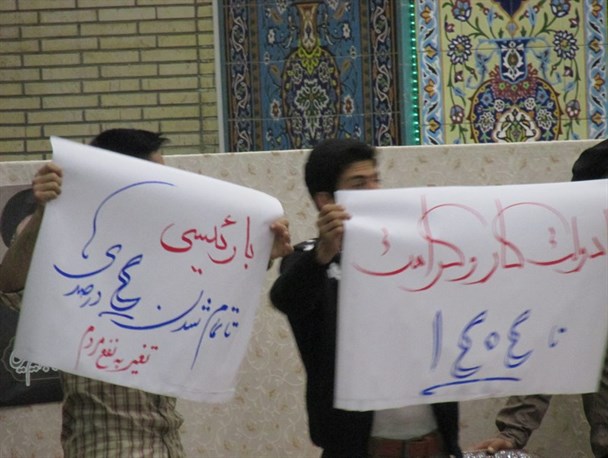 با رئیسی
تا تمام شدن ۴ درصدی ها
تغیر به نفع مردم
دولت کار و کرامت
تا ۱۴۰۴